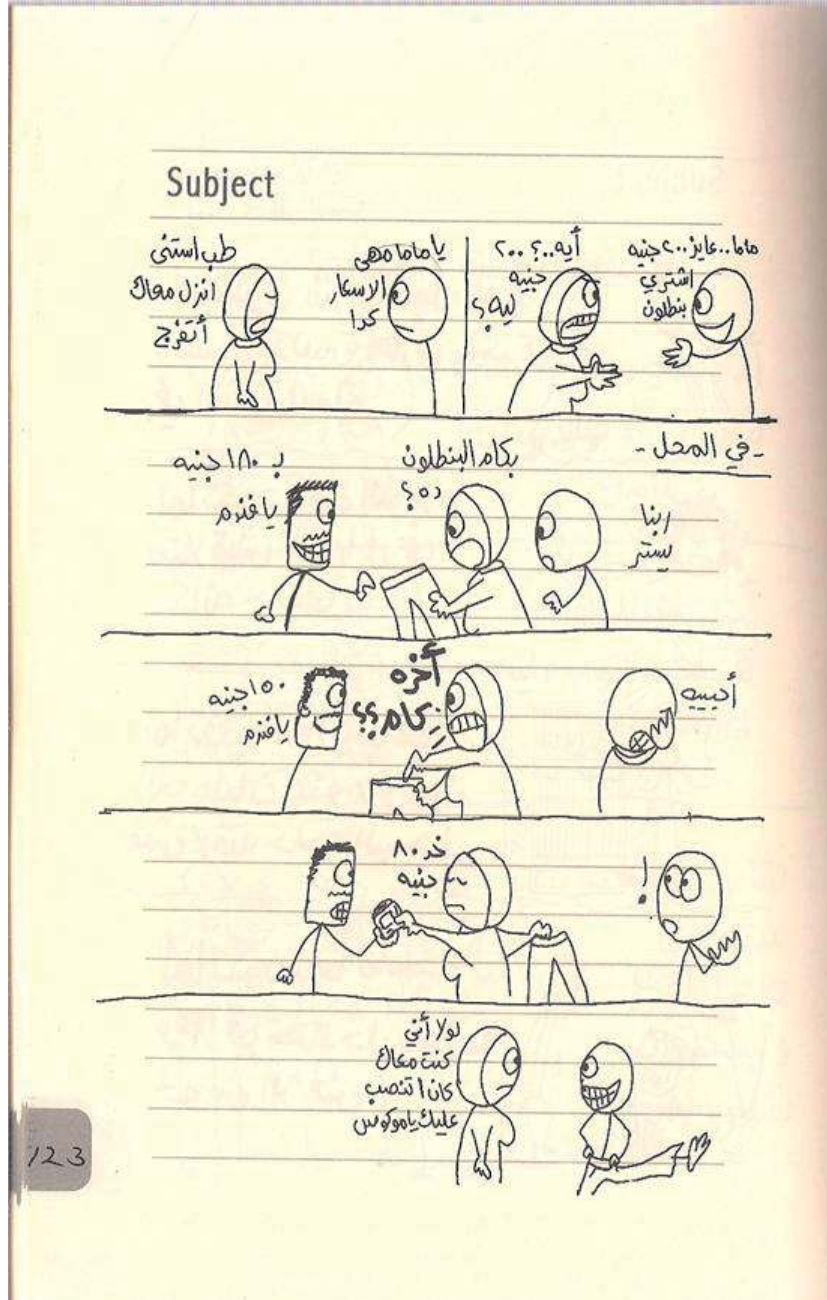 Subject
ماما..عايز ٢٠٠ جنيه
اشتري
بنطلون
أيه..؟ ٢٠٠
جنيه
ليه؟
يا ماما مهي
الاسعار
كدا
طب استنى
انزل معاك
أتفرج
- في المحل -
ربنا
يستر
بكام البنطلون
ده؟
بـ ١٨٠ جنيه
يا فندم
أحييه
أخره
بكام؟؟
١٥٠ جنيه
يا فندم
!
خد ٨٠
جنيه
لولا أني
كنت معاك
كان اتنصب
عليك يا موكوس
123